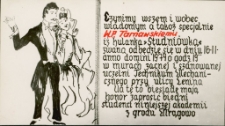 Czynimy wszem i wobec
wiadomym a takoż specjalnie
W.P. Tarnowskiemu,
iż hulanka "Studniówka"
zwana odbędzie się w dniu 16-II
anno domini 1974 o godz 19
w murach zacnej i szanownej
uczelni Technikum Mechani-
cznego przy ulicy Lenina
Na tę to biesiadę mają
honor zaprosić biedni
studenci niniejszej akademii
z grodu Mrągowo